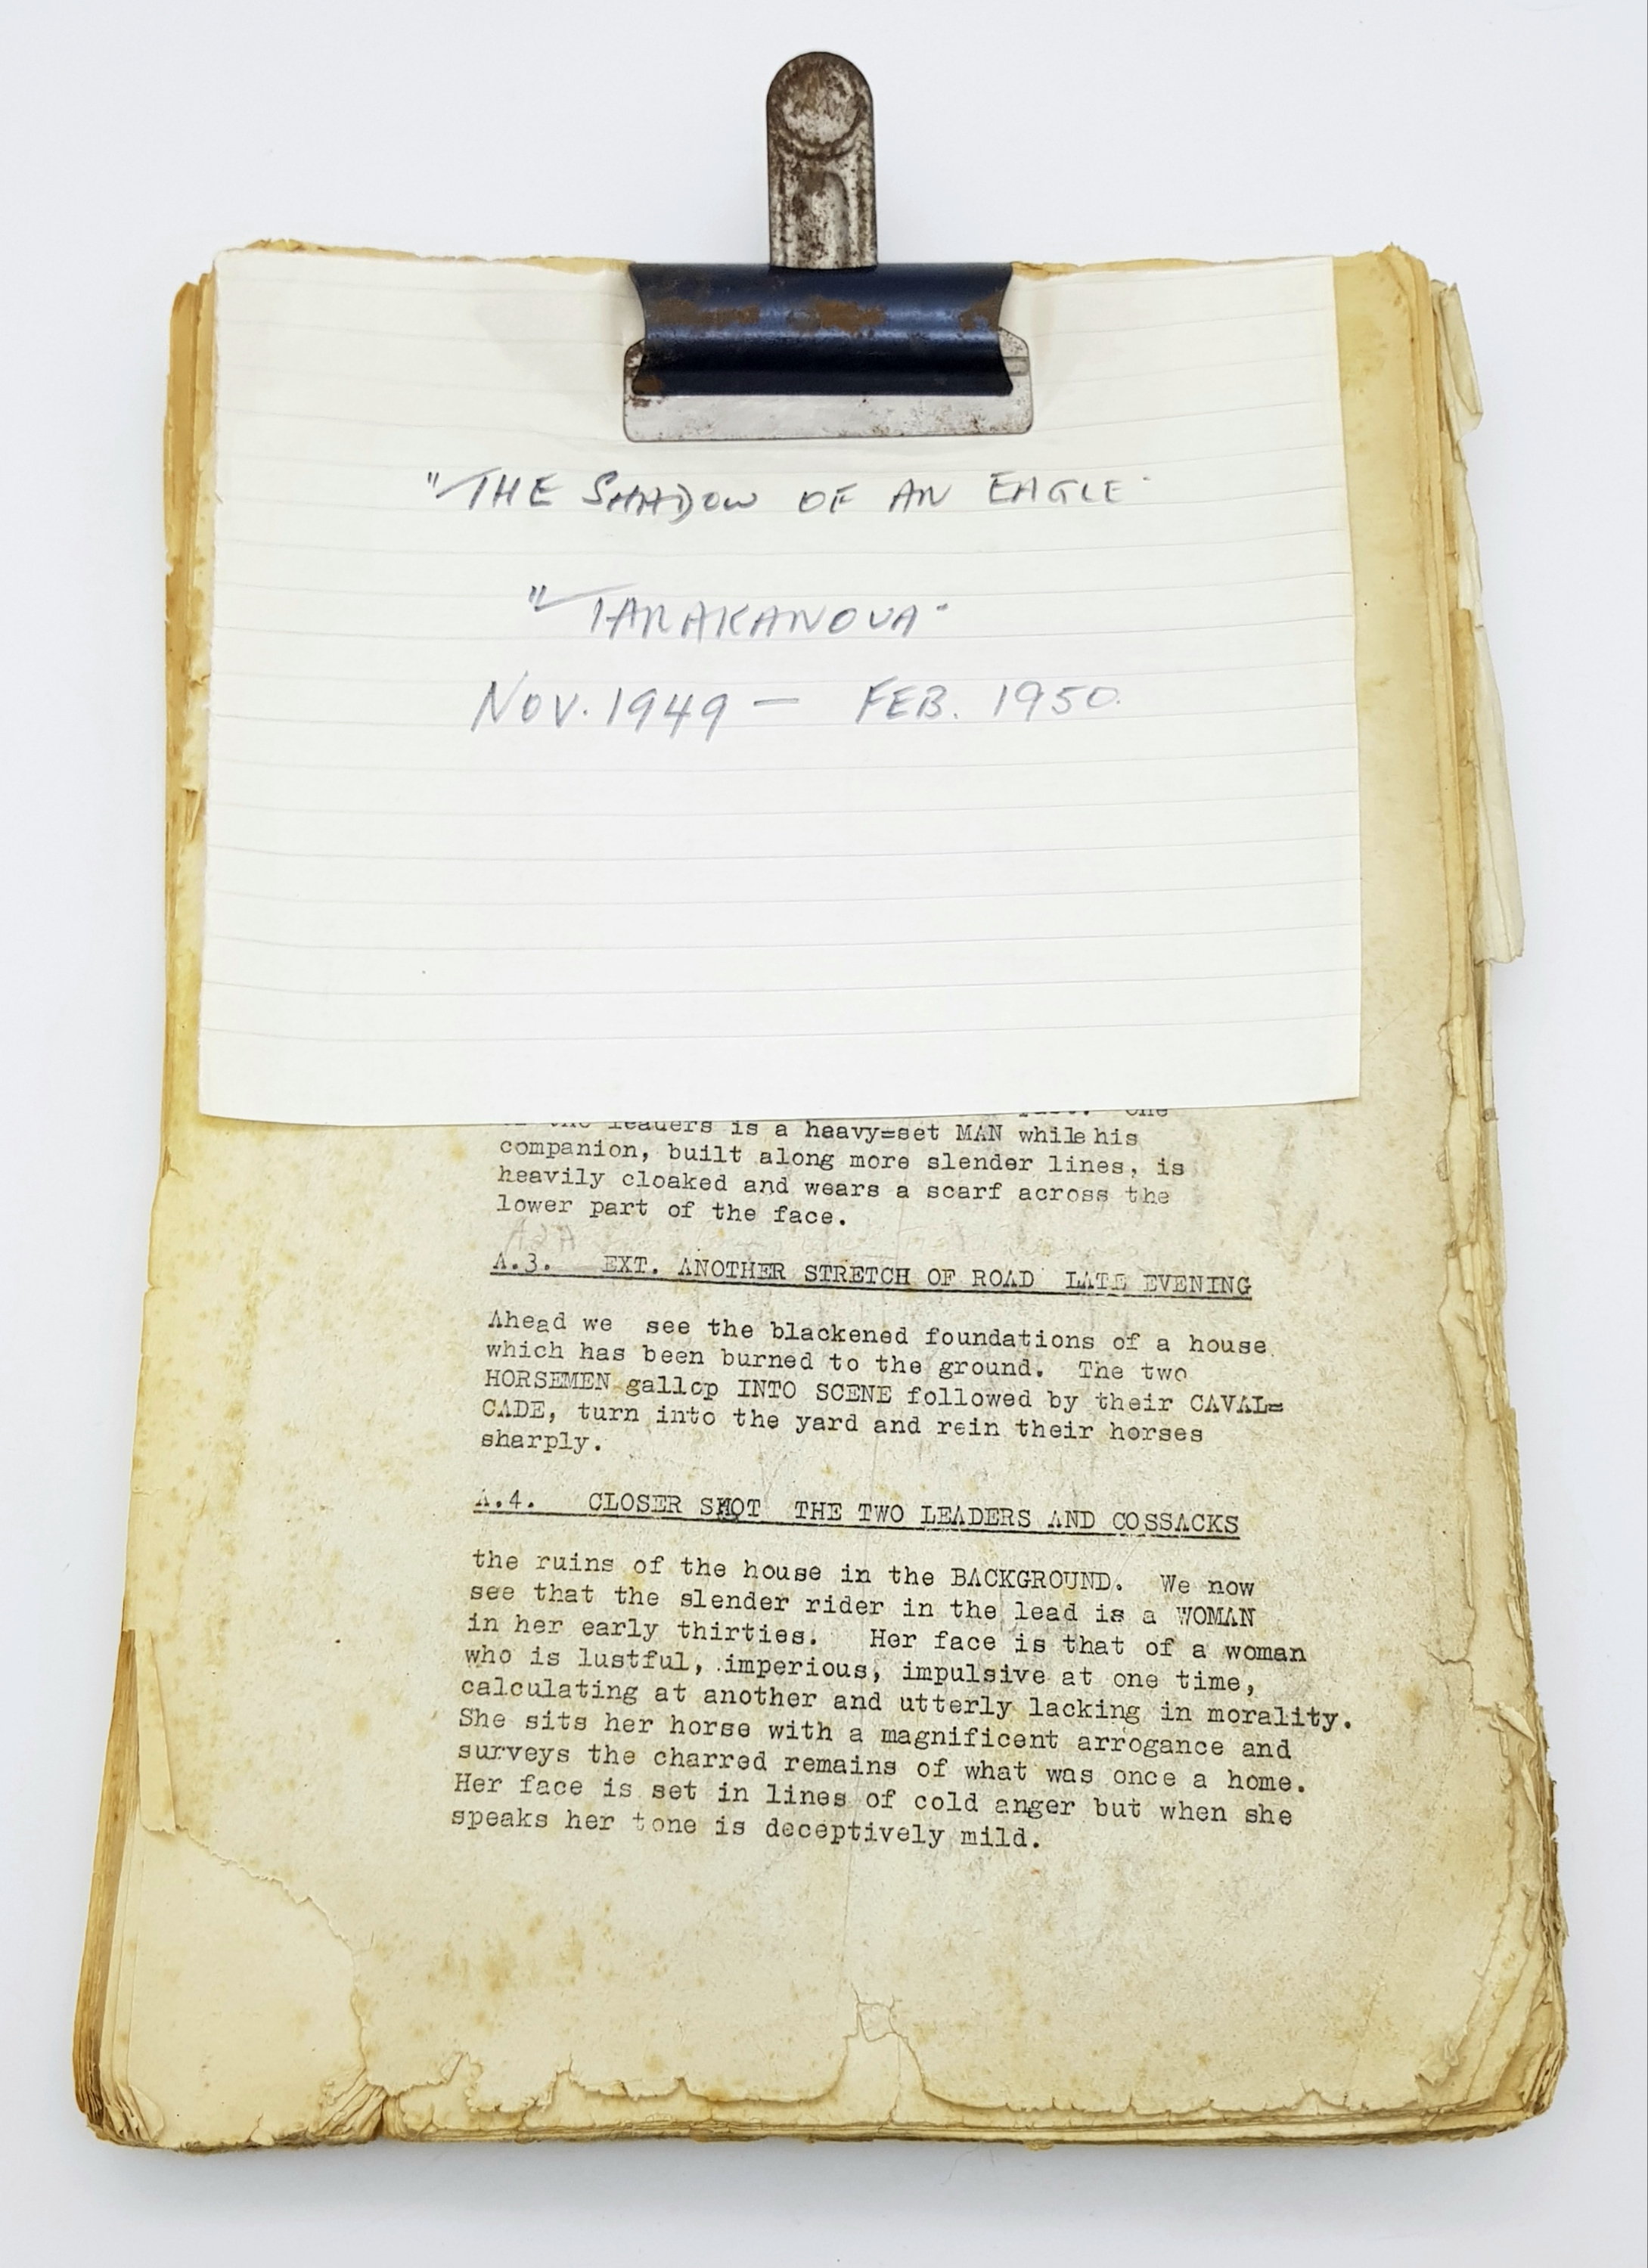 "THE SHADOW OF AN EAGLE"
"TARAKANOVA"
NOV. 1949 — FEB. 1950.
One
leaders is a heavy=set MAN while his
companion, built along more slender lines, is
heavily cloaked and wears a scarf across the
lower part of the face.
A2A
A.3. EXT. ANOTHER STRETCH OF ROAD LATE EVENING
Ahead we see the blackened foundations of a house
which has been burned to the ground. The two
HORSEMEN gallop INTO SCENE followed by their CAVAL=
CADE, turn into the yard and rein their horses
sharply.
A.4. CLOSER SHOT THE TWO LEADERS AND COSSACKS
the ruins of the house in the BACKGROUND. We now
see that the slender rider in the lead is a WOMAN
in her early thirties. Her face is that of a woman
who is lustful, imperious, impulsive at one time,
calculating at another and utterly lacking in morality.
She sits her horse with a magnificent arrogance and
surveys the charred remains of what was once a home.
Her face is set in lines of cold anger but when she
speaks her tone is deceptively mild.